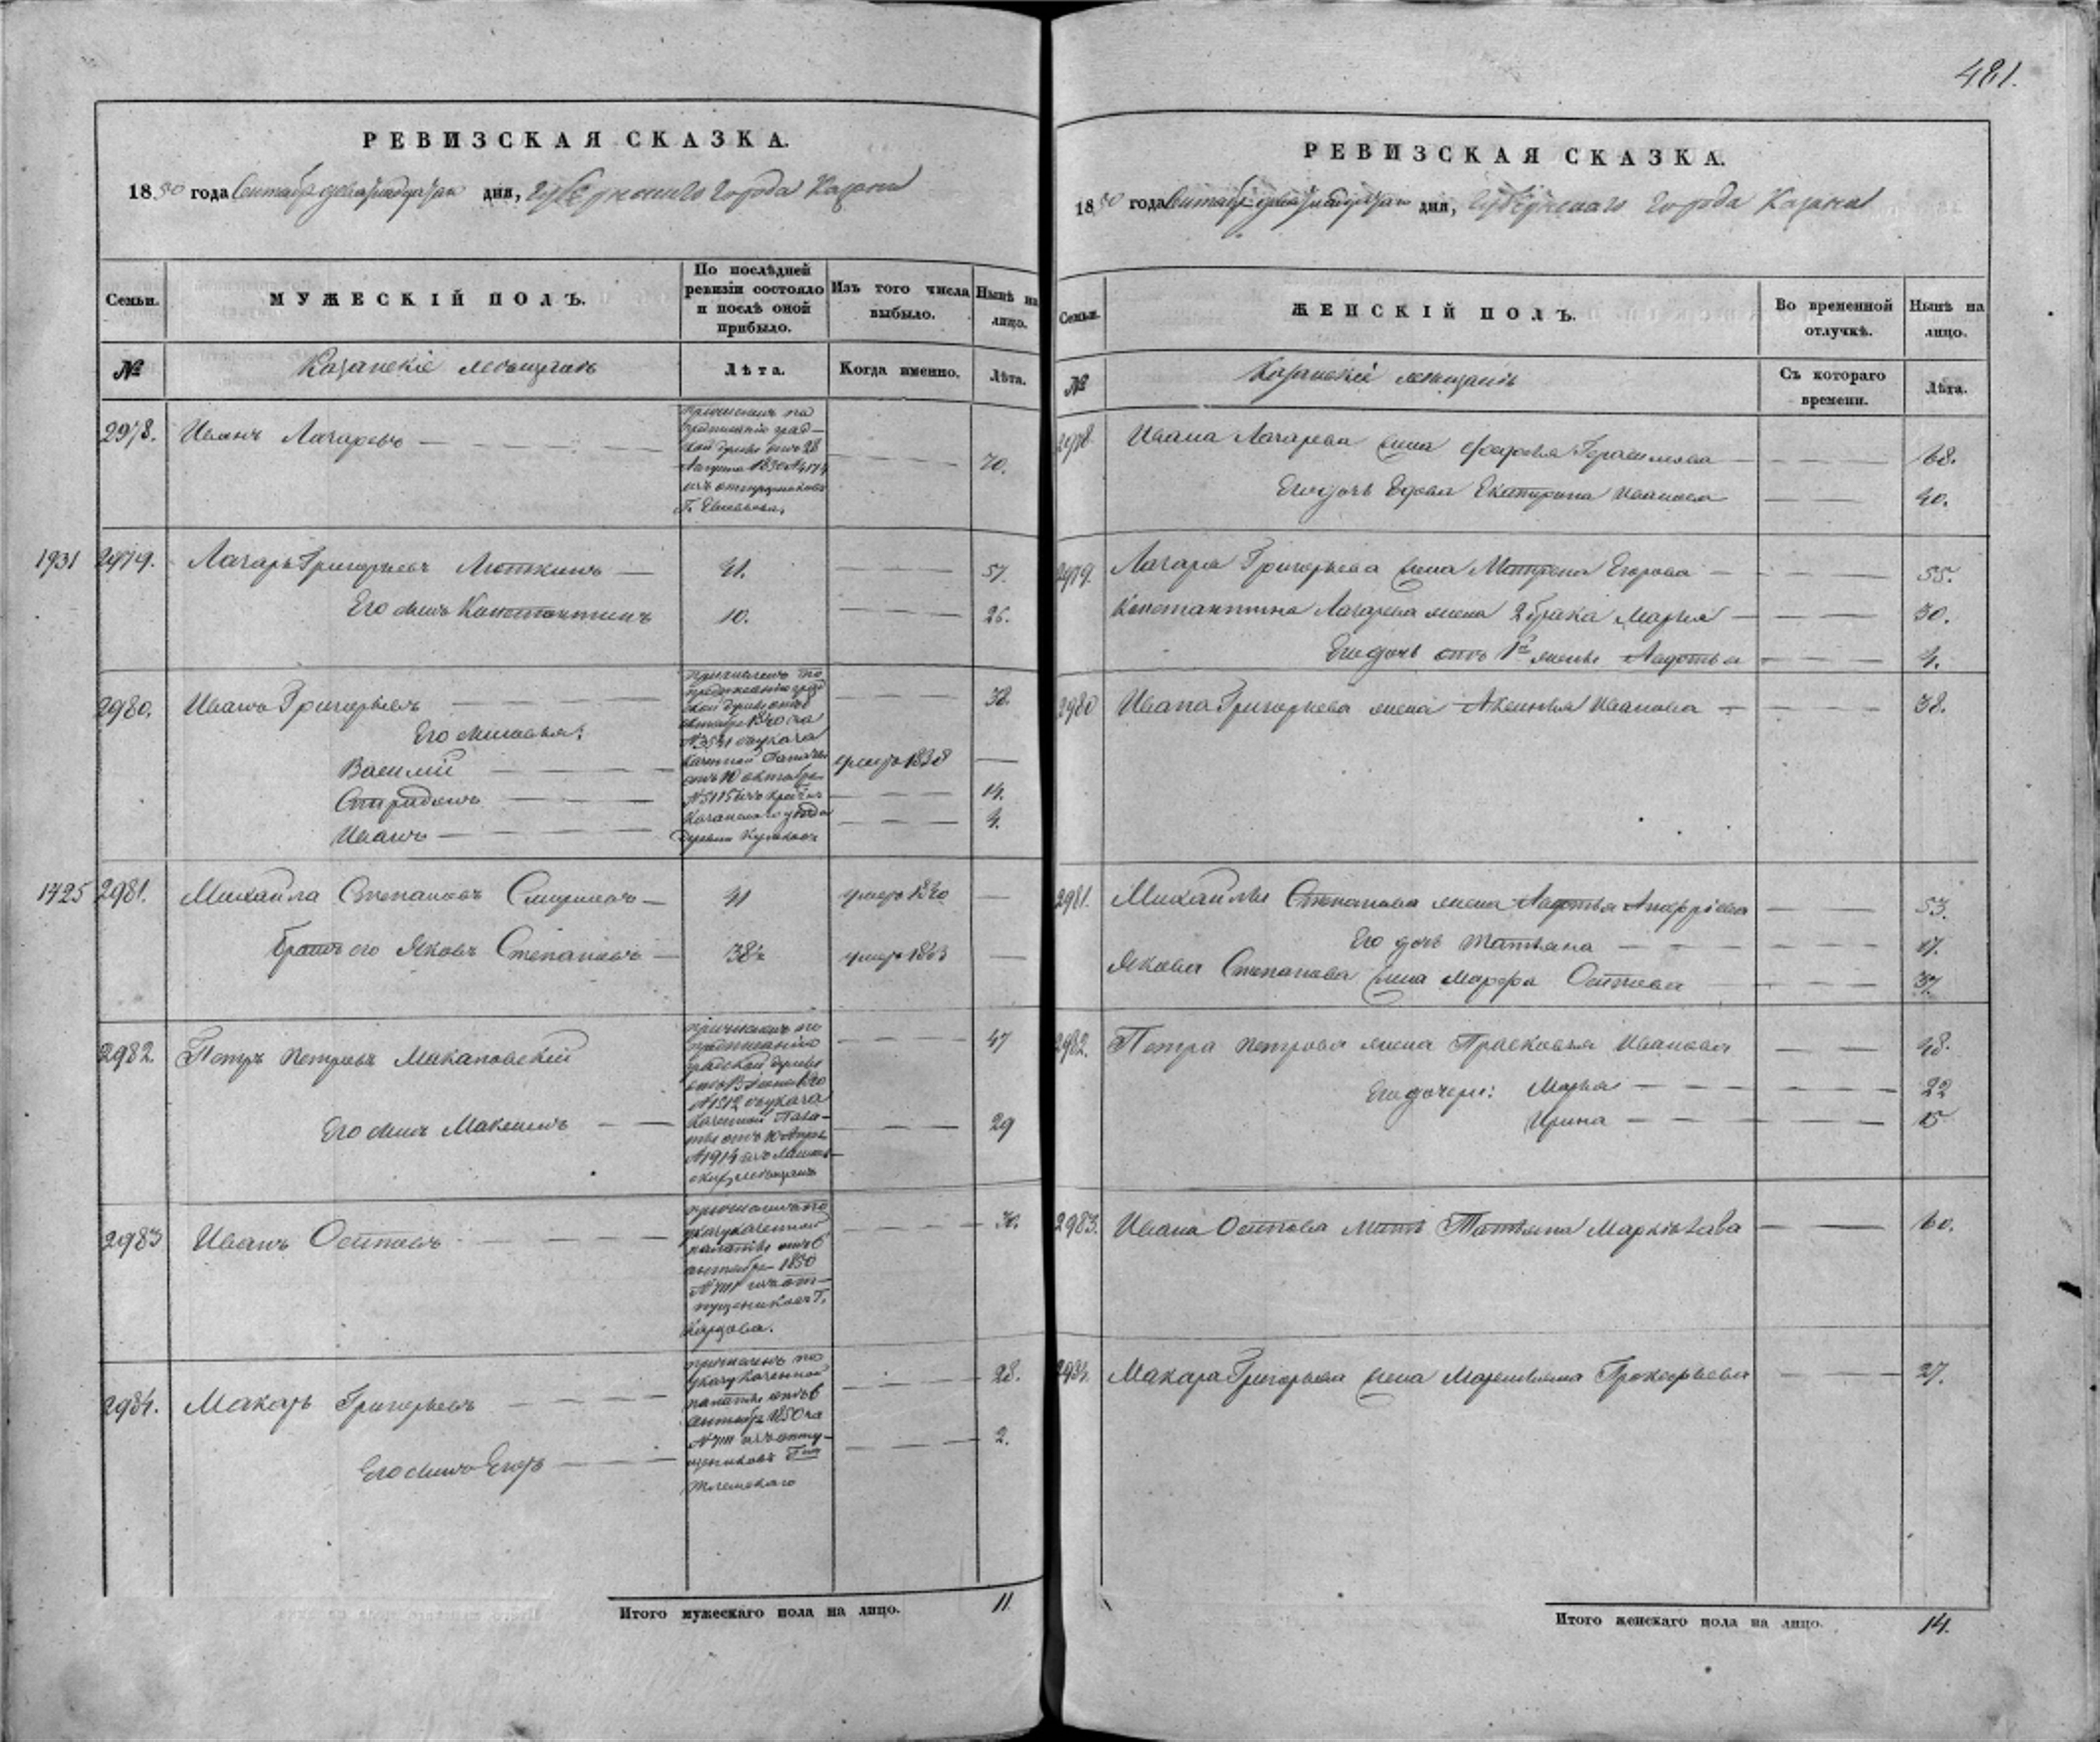 481.
РЕВИЗСКАЯ СКАЗКА.
1850 года Сентября девятнадцатаго дня, Губернскаго города Казани
Семьи. МУЖЕСКІЙ ПОЛЪ. По послѣдней ревизіи состояло и послѣ оной прибыло. Изъ того числа выбыло. Нынѣ на лицо.
№ Казанскіе мещане Лѣта. Когда именно. Лѣта.
2978. Иванъ Лазаревъ 70.
причисленъ по
предписанію град-
ской думы отъ 28
Августа 1830
изъ отпущенниковъ
1931 2979. Лазарь Григорьевъ 41. 57.
Его сынъ Константинъ 10. 26.
2980. Иванъ Григорьевъ 38.
Его сыновья:
Василій умеръ 1838
Спиридонъ 14.
Иванъ 4.
причисленъ по
предписанію град
ской думы отъ
октября 1840 за
казенной Палаты
отъ 10 октября
№ 5115 изъ
Казанскаго уѣзда
деревни
1725 2981. Михайла Степановъ Смирновъ 41 умеръ 1840
Братъ его Яковъ Степановъ 38 умеръ 1843
2982. Петръ Петровъ Макаповскій 47
Его сынъ Максимъ 29
причисленъ по
предписанію
градской думы
№ 1512 и указа
казенной Пала-
ты отъ 10 Апрѣля
№ 1914 изъ
2983 Иванъ Осиповъ 30.
указу казенной
палаты отъ 6
сентября 1850
№ 7111 изъ от-
пущенниковъ Г.
2984. Макаръ Григорьевъ 28.
Его сынъ Егоръ 2.
причисленъ по
указу казенной
палаты отъ 6
сентября 1850 за
№ 7111 изъ отпу-
щенниковъ
Итого мужескаго пола на лицо. 11.
РЕВИЗСКАЯ СКАЗКА.
1850 года Сентября девятнадцатаго дня, Губернскаго города Казани
Семьи. ЖЕНСКІЙ ПОЛЪ. Во временной отлучкѣ. Нынѣ на лицо.
№ Казанскіе мещане Съ котораго времени. Лѣта.
2978. Ивана Лазарева жена Федосья Герасимова 68.
Его дочь вдова Екатерина Иванова 40.
2979. Лазаря Григорьева жена Матрена Егорова 55.
Константина Лазарева жена 2 брака Марья 30.
Его дочь отъ 1й жены Авдотья 4.
2980 Ивана Григорьева жена Аксинья Иванова 38.
2981. Михайлы Степанова жена Авдотья 53.
Его дочь Татьяна 17.
Якова Степанова жена Марфа Осипова 37.
2982. Петра Петрова жена Прасковья Иванова 48.
Его дочери: Марья 22
Ирина 15
2983. Ивана Осипова мать Татьяна 60.
2984. Макара Григорьева жена Прокофьева 27.
Итого женскаго пола на лицо. 14.